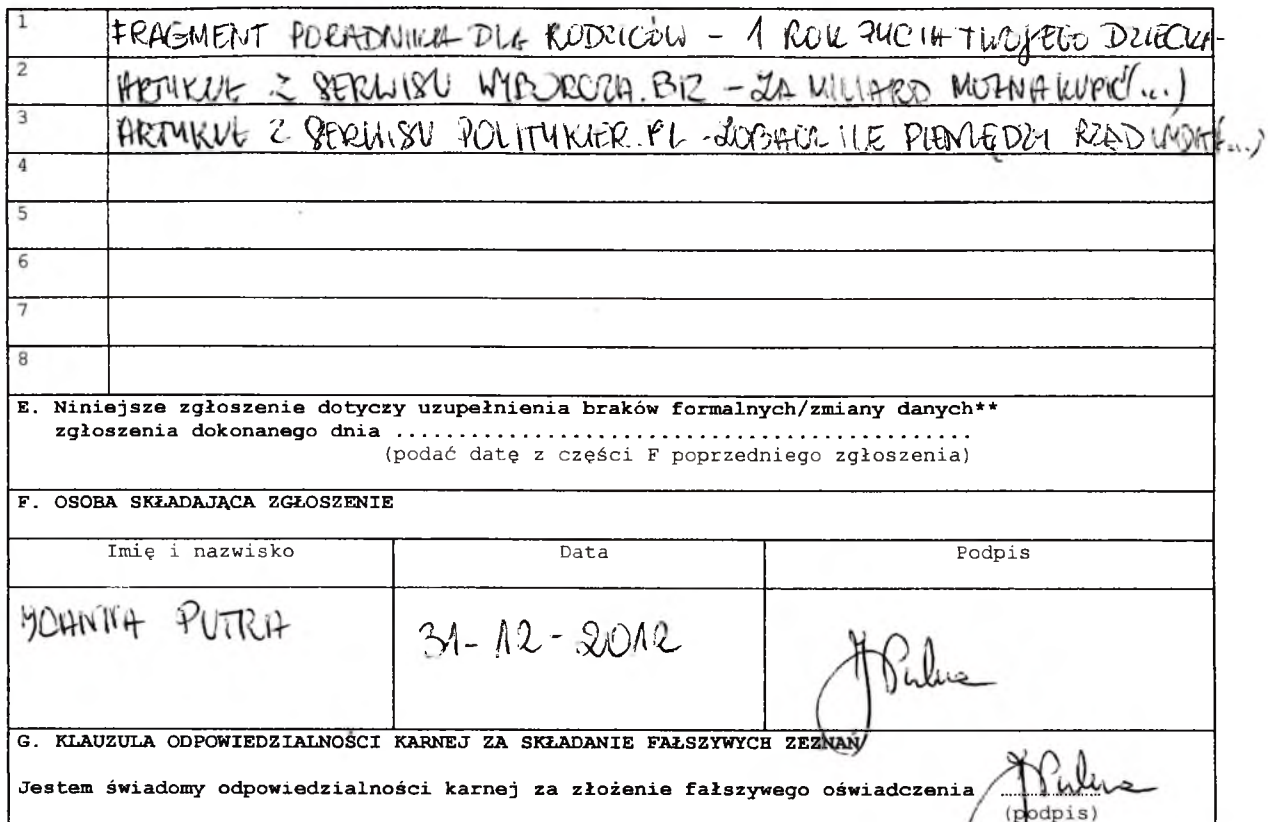 1 FRAGMENT PORADNIKA DLA RODZICÓW - 1 ROK ŻYCIA TWOJEGO DZIECKA-
2 ARTYKUŁ Z SERWISU WYBORCZA.BIZ - ZA MILIARD MOŻNA KUPIĆ (...)
3 ARTYKUŁ Z SERWISU POLITYKIER.PL - ZOBACZ ILE PIENIĘDZY RZĄD WYDAŁ (...)
4
5
6
7
8
E. Niniejsze zgłoszenie dotyczy uzupełnienia braków formalnych/zmiany danych**
zgłoszenia dokonanego dnia ................................................
(podać datę z części F poprzedniego zgłoszenia)
F. OSOBA SKŁADAJĄCA ZGŁOSZENIE
Imię i nazwisko Data Podpis
JOANNA PUTRA 31-12-2012
G. KLAUZULA ODPOWIEDZIALNOŚCI KARNEJ ZA SKŁADANIE FAŁSZYWYCH ZEZNAŃ
Jestem świadomy odpowiedzialności karnej za złożenie fałszywego oświadczenia
(podpis)